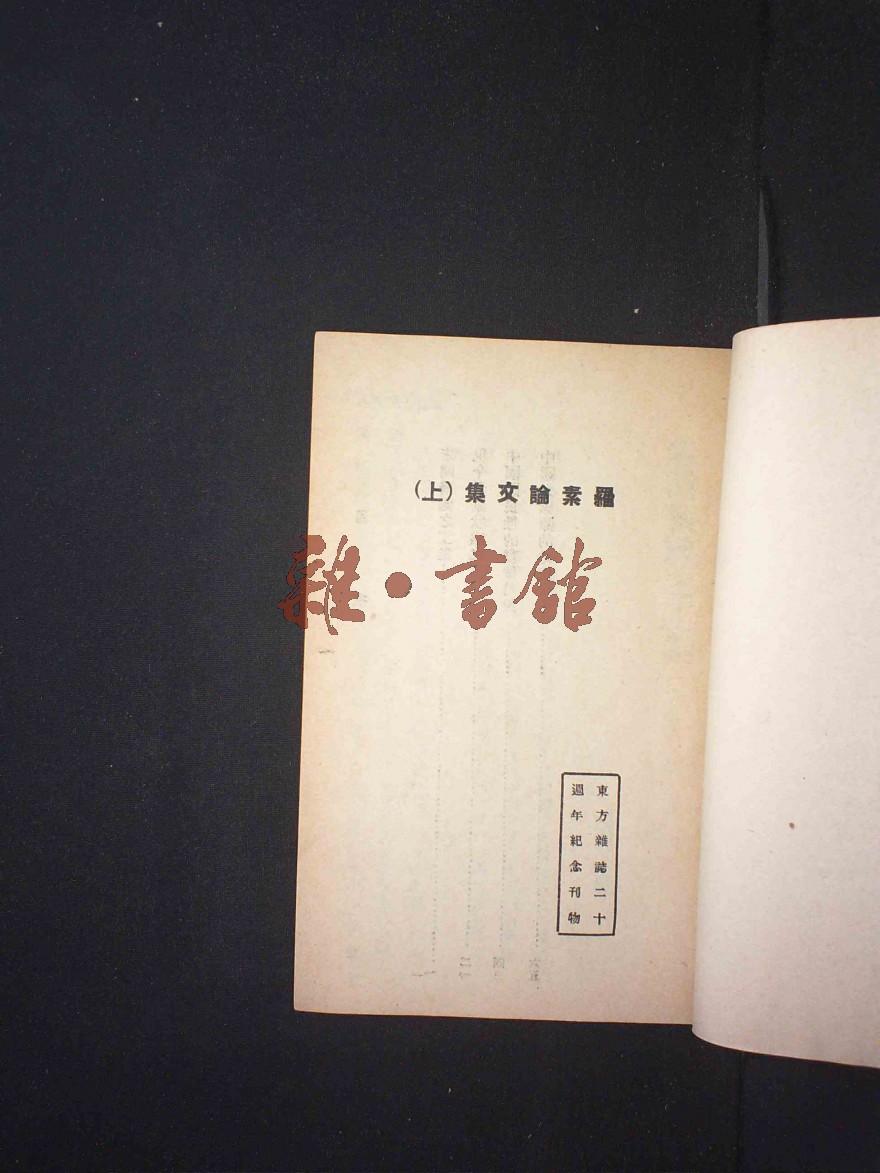 羅素論文集(上)
雜•書館
東方雜誌二十
週年紀念刊物